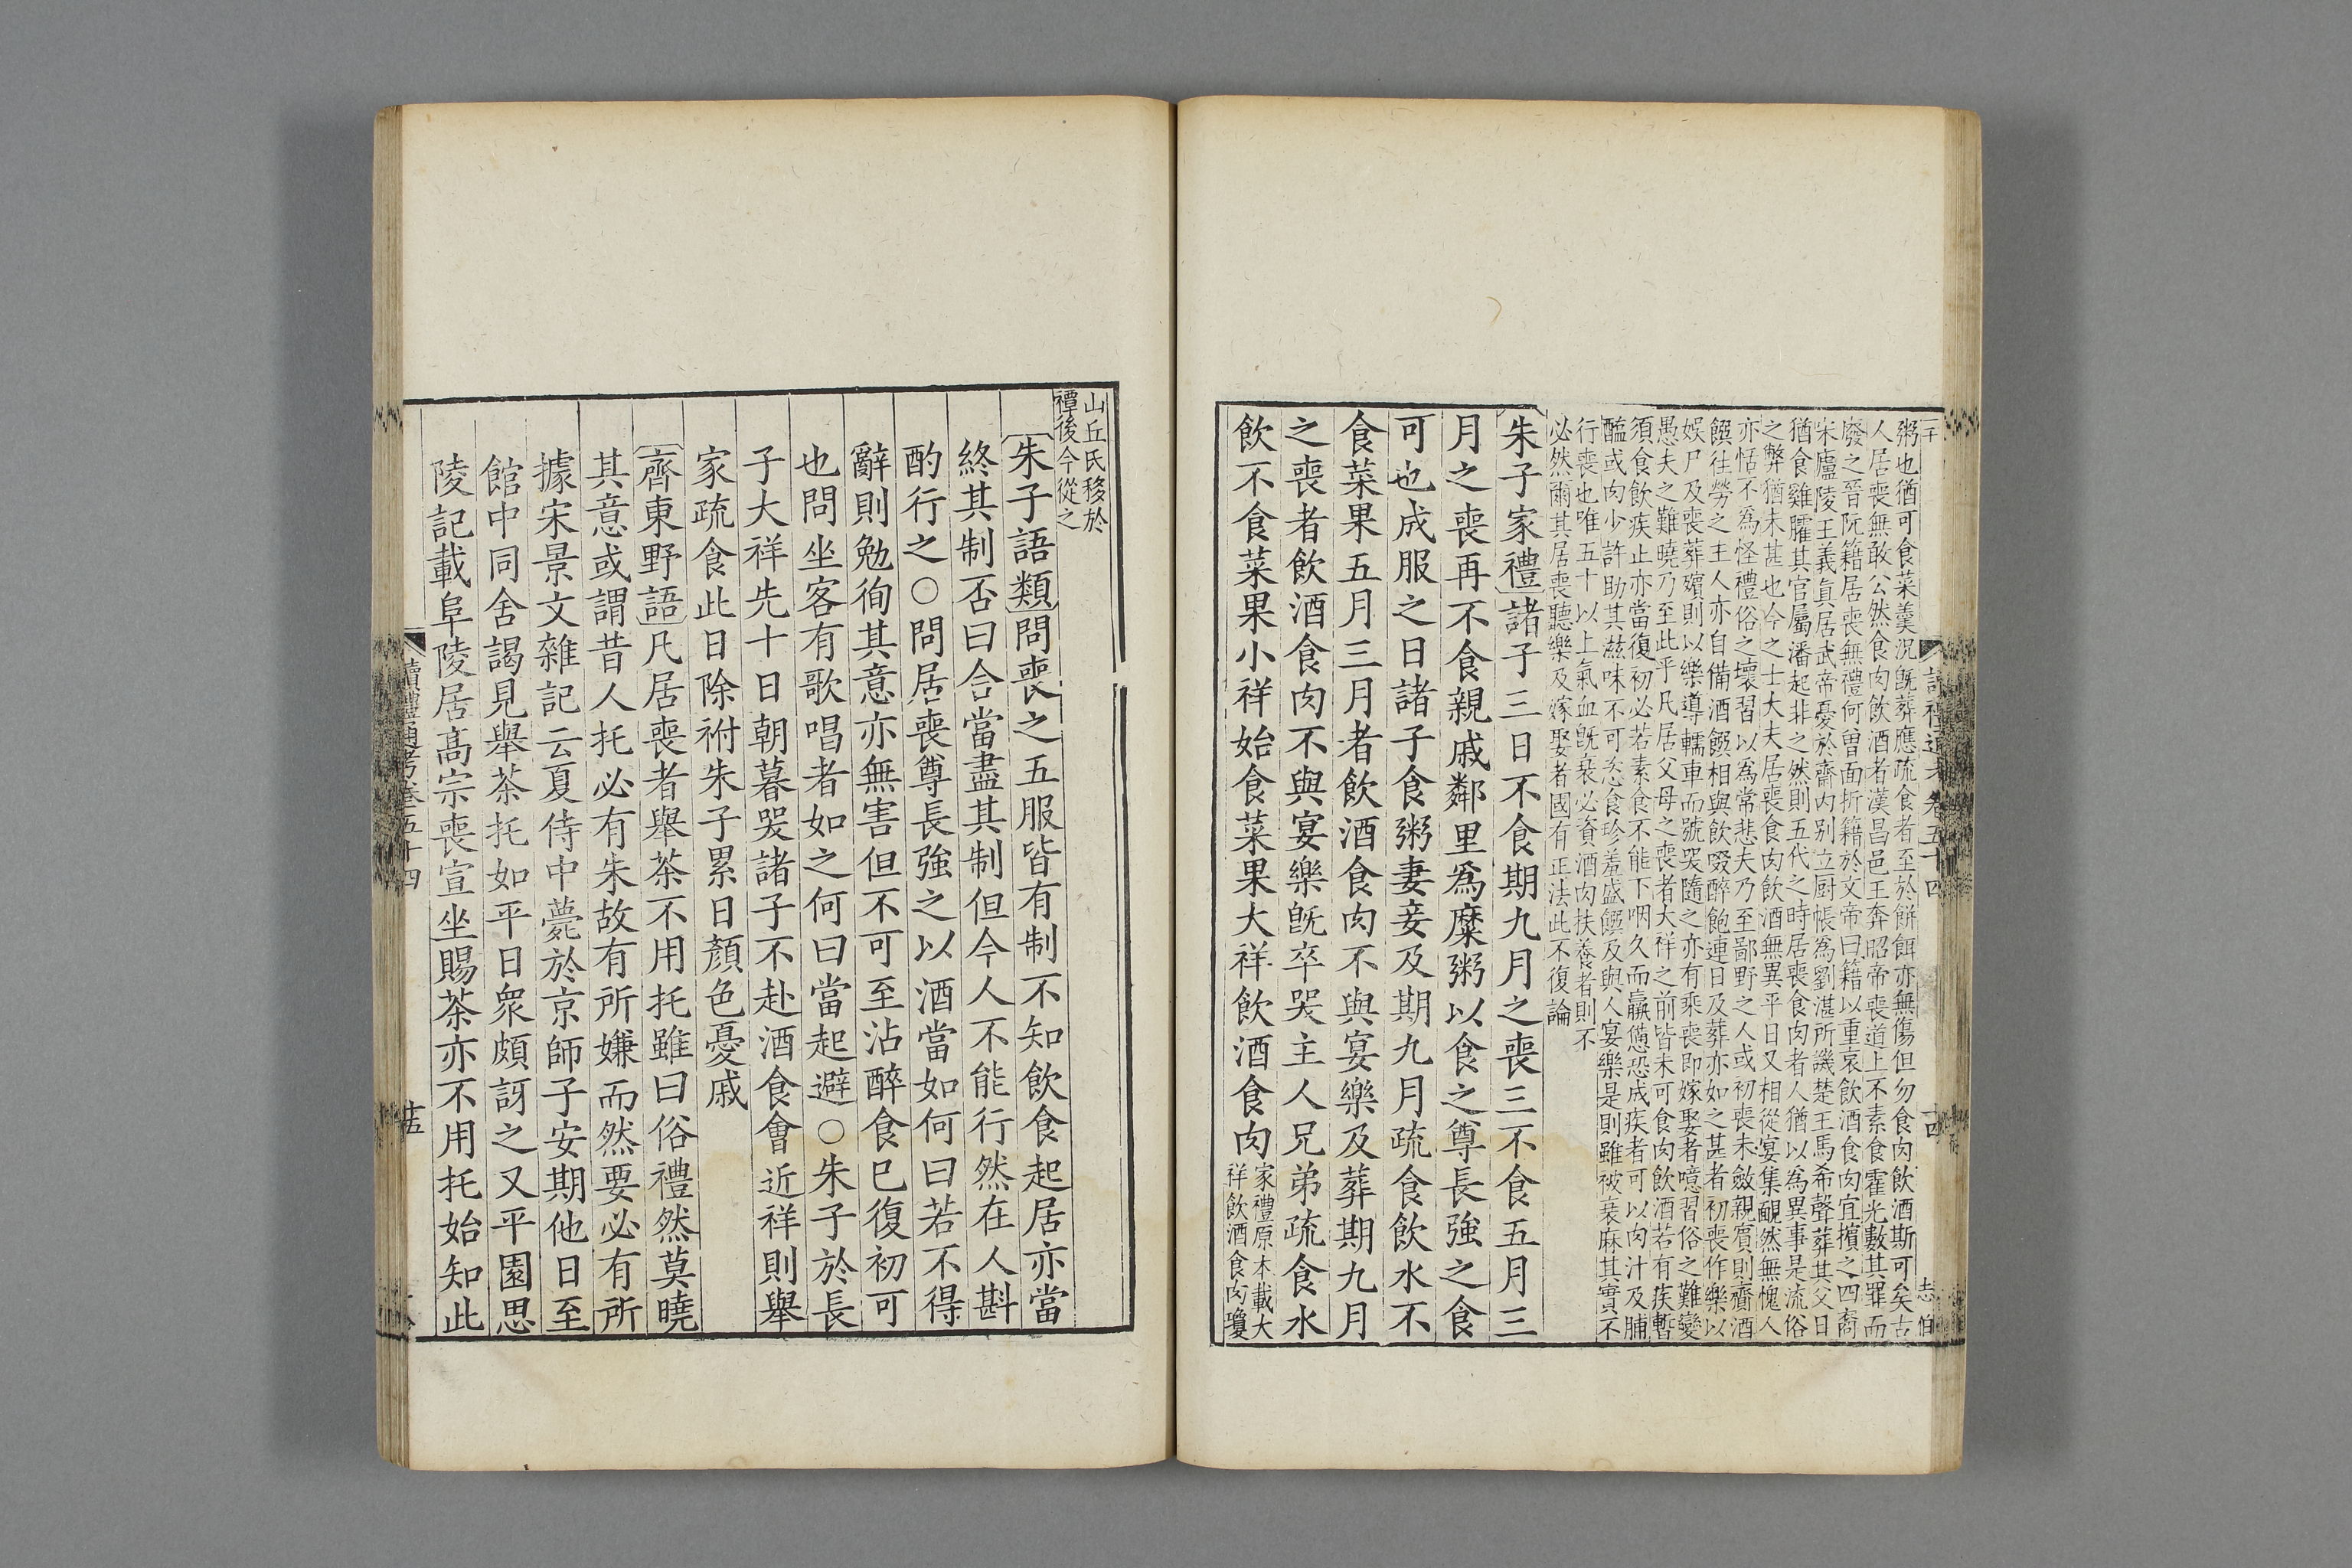 粥也猶可食菜羹況旣葬應疏食者至於餅餌亦無傷但勿食肉飲酒斯可矣古
人居喪無敢公然食肉飲酒者漢昌邑王奔昭帝喪道上不素食霍光數其罪而
廢之晉阮籍居喪無禮何曾面折籍於文帝曰籍以重哀飲酒食肉宜擯之四裔
宋廬陵王義真居武帝憂於齋內別立厨帳爲劉湛所譏楚王馬希聲葬其父日
猶食雞臛其官屬潘起非之然則五代之時居喪食肉者人猶以爲異事是流俗
之弊猶未甚也今之士大夫居喪食肉飲酒無異平日又相從宴集靦然無愧人
亦恬不爲怪禮俗之壞習以爲常悲夫乃至鄙野之人或初喪未斂親賓則齎酒
饌往勞之主人亦自備酒饌相與飲啜醉飽連日及葬亦如之甚者初喪作樂以
娛尸及喪葬殯則以樂導轜車而號哭隨之亦有乘喪即嫁娶者噫習俗之難變
愚夫之難曉乃至此乎凡居父母之喪者大祥之前皆未可食肉飲酒若有疾暫
須食飲疾止亦當復初必若素食不能下咽久而羸憊恐成疾者可以肉汁及脯
醢或肉少許助其滋味不可恣食珍羞盛饌及與人宴樂是則雖被衰麻其實不
行喪也唯五十以上氣血旣衰必資酒肉扶養者則不
必然爾其居喪聽樂及嫁娶者國有正法此不復論
朱子家禮諸子三日不食期九月之喪三不食五月三
月之喪再不食親戚鄰里爲糜粥以食之尊長強之食
可也成服之日諸子食粥妻妾及期九月疏食飲水不
食菜果五月三月者飲酒食肉不與宴樂及葬期九月
之喪者飲酒食肉不與宴樂旣卒哭主人兄弟疏食水
飲不食菜果小祥始食菜果大祥飲酒食肉
家禮原本載大
祥飲酒食肉瓊
山丘氏移於
禫後今從之
朱子語類問喪之五服皆有制不知飲食起居亦當
終其制否曰合當盡其制但今人不能行然在人斟
酌行之○問居喪尊長強之以酒當如何曰若不得
辭則勉徇其意亦無害但不可至沾醉食已復初可
也問坐客有歌唱者如之何曰當起避○朱子於長
子大祥先十日朝暮哭諸子不赴酒食會近祥則舉
家疏食此日除祔朱子累日顏色憂戚
齊東野語凡居喪者舉茶不用托雖曰俗禮然莫曉
其意或謂昔人托必有朱故有所嫌而然要必有所
據宋景文雜記云夏侍中薨於京師子安期他日至
館中同舍謁見舉茶托如平日衆頗訝之又平園思
陵記載阜陵居高宗喪宣坐賜茶亦不用托始知此
讀禮通考卷五十四